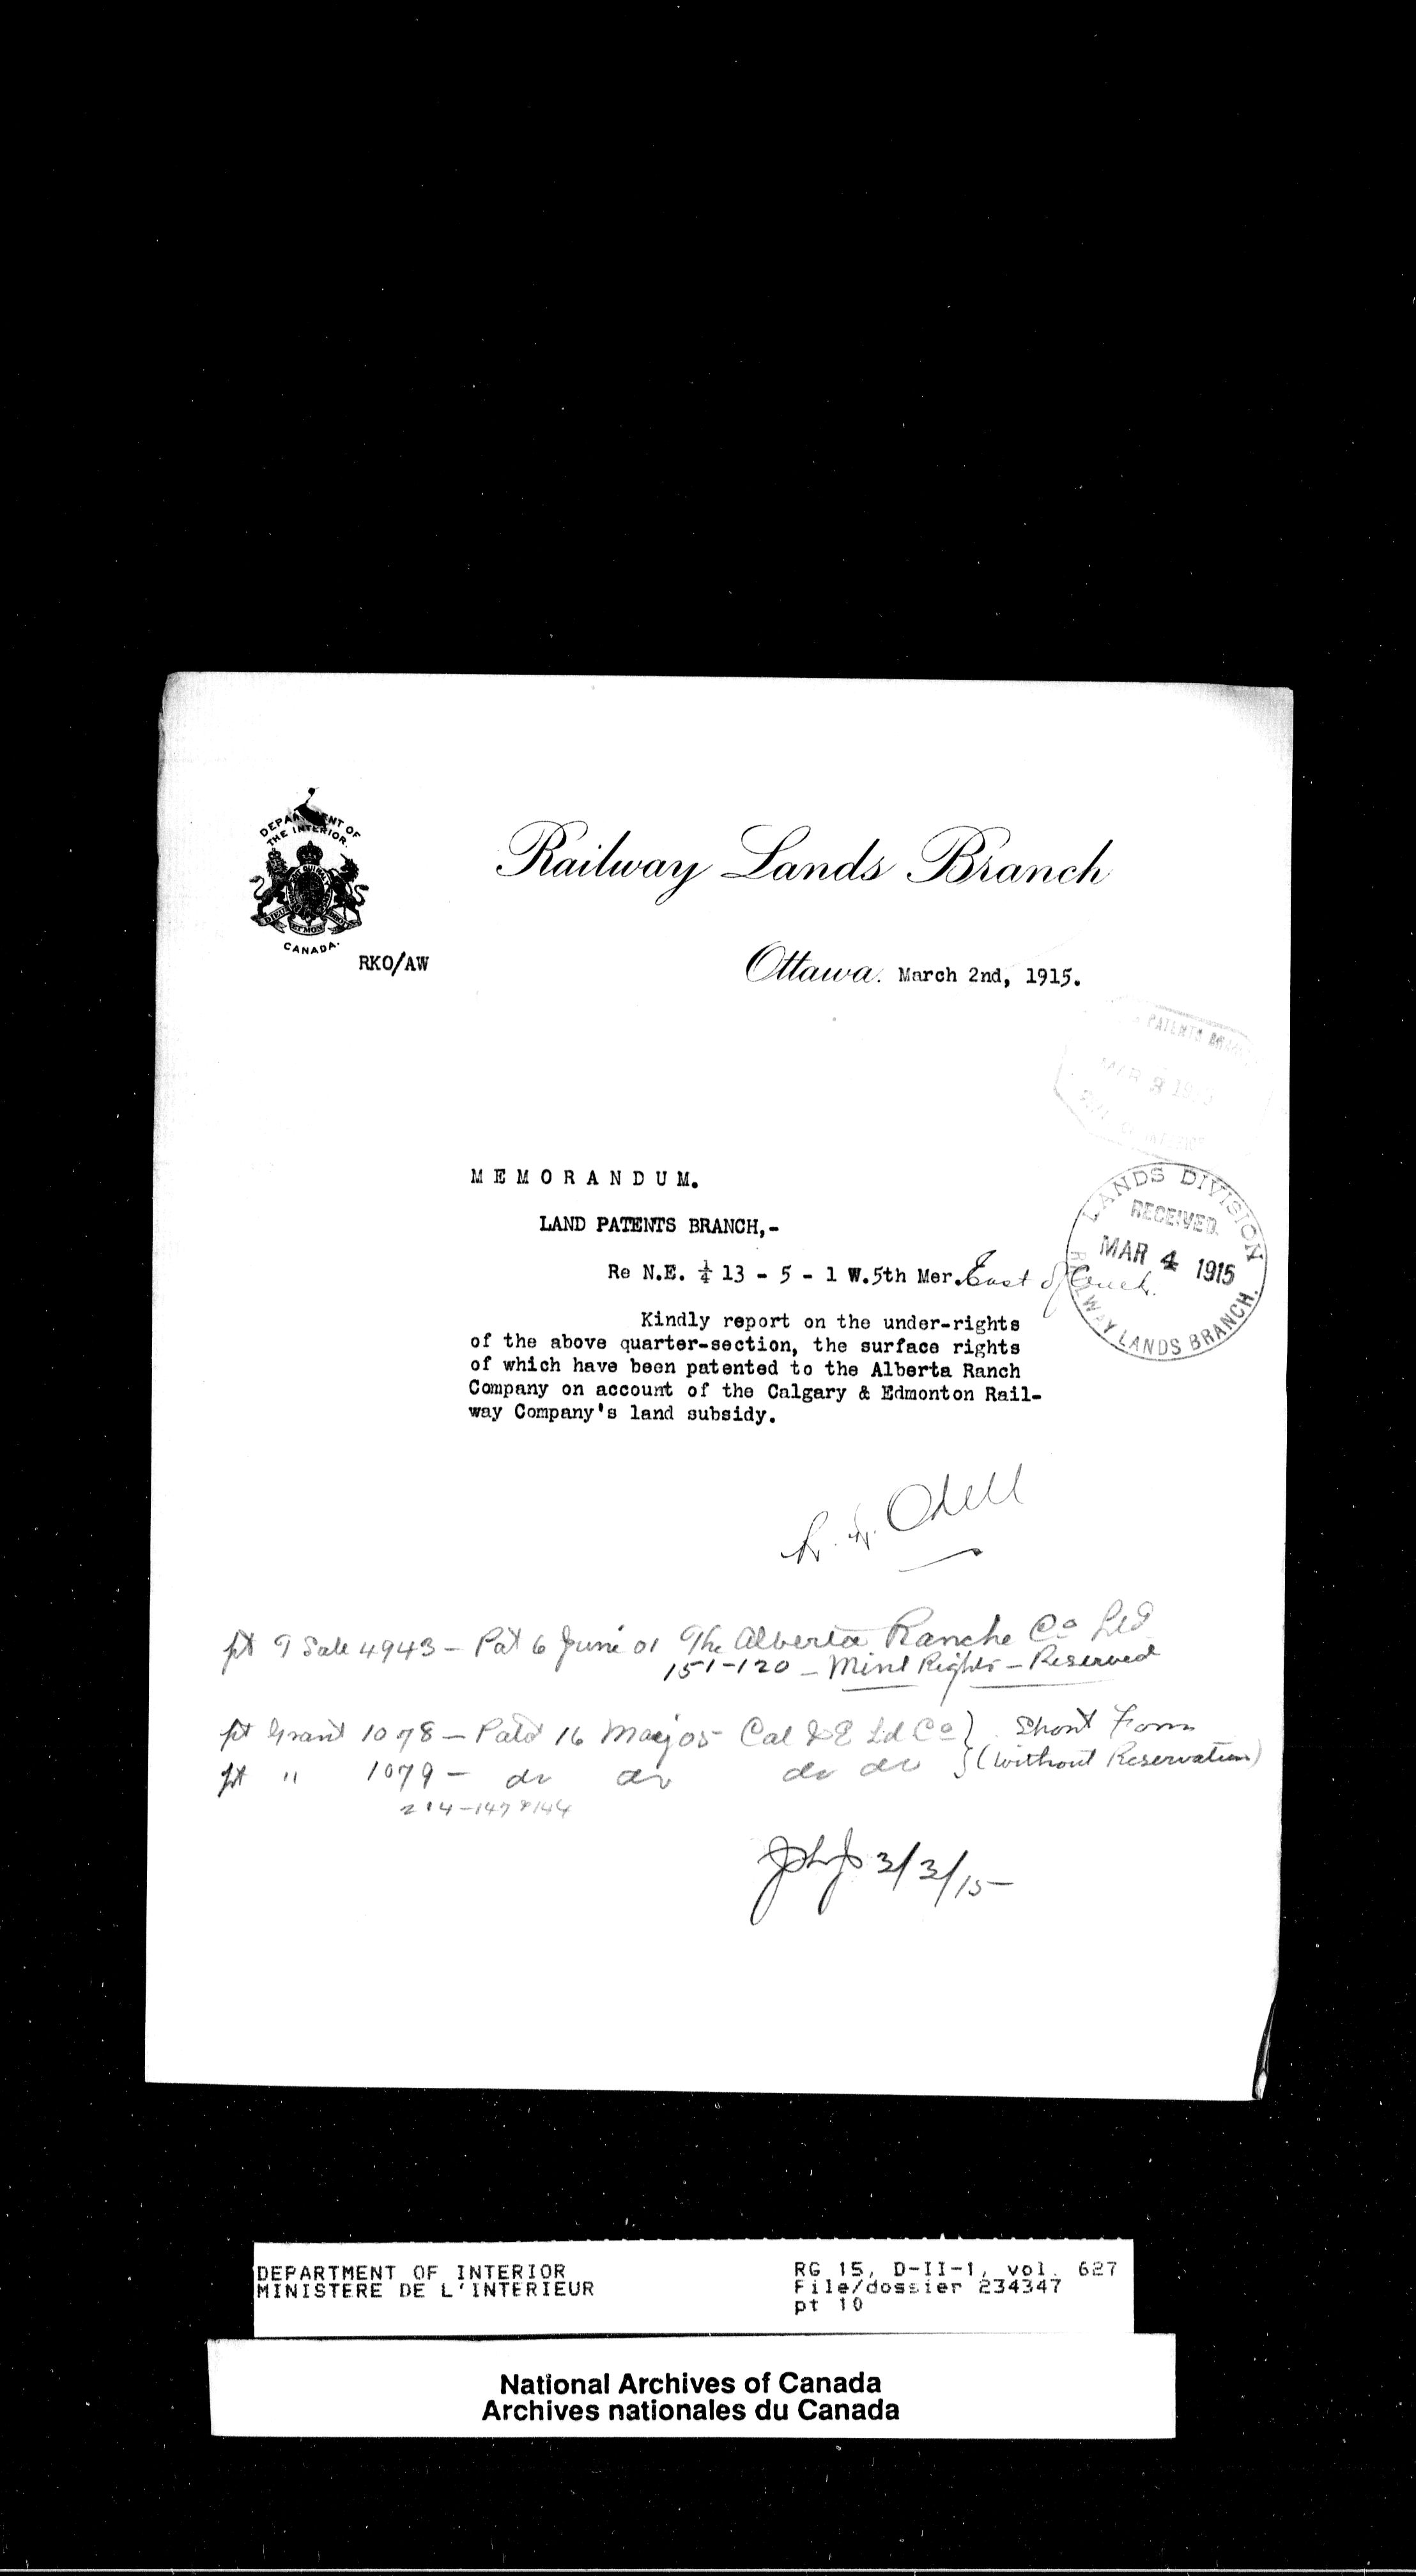 DEPARTMENT OF
THE INTERIOR.
DIEU ET MON DROIT
CANADA.
Railway Lands Branch
RKO/AW
Ottawa. March 2nd, 1915.
PATENTS BRANCH
MAR
LANDS DIVISION
RECEIVED
MAR 4 1915
RAILWAY LANDS BRANCH.
MEMORANDUM.
LAND PATENTS BRANCH,-
Re N.E. ¼ 13 - 5 - 1 W.5th Mer. East of Creek.
Kindly report on the under-rights
of the above quarter-section, the surface rights
of which have been patented to the Alberta Ranch
Company on account of the Calgary & Edmonton Rail-
way Company's land subsidy.
Odell
pt Sale 4943 - Pat 6 June 01 The Alberta Ranche Co Ltd
151-120 - Minl Rights - Reserved
pt Grant 1078 - Patd 16 May 05 Cal & E Ld Co } Short Form
pt " 1079 - do do do do } (without Reservation)
214-147 & 144
3/3/15
DEPARTMENT OF INTERIOR
MINISTERE DE L'INTERIEUR
RG 15, D-II-1, vol. 627
File/dossier 234347
pt 10
National Archives of Canada
Archives nationales du Canada